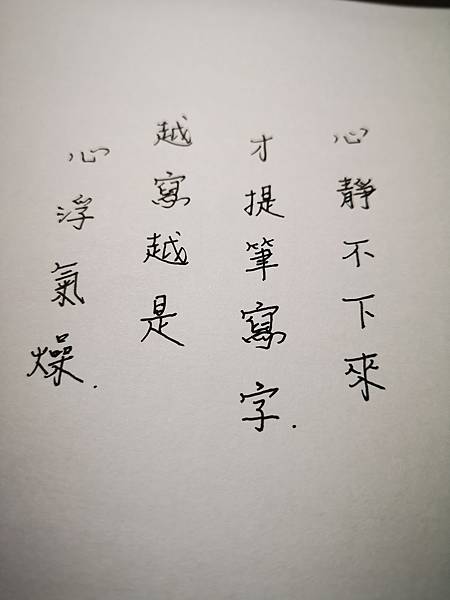 心靜不下來
才提筆寫字.
越寫越是
心浮氣燥.